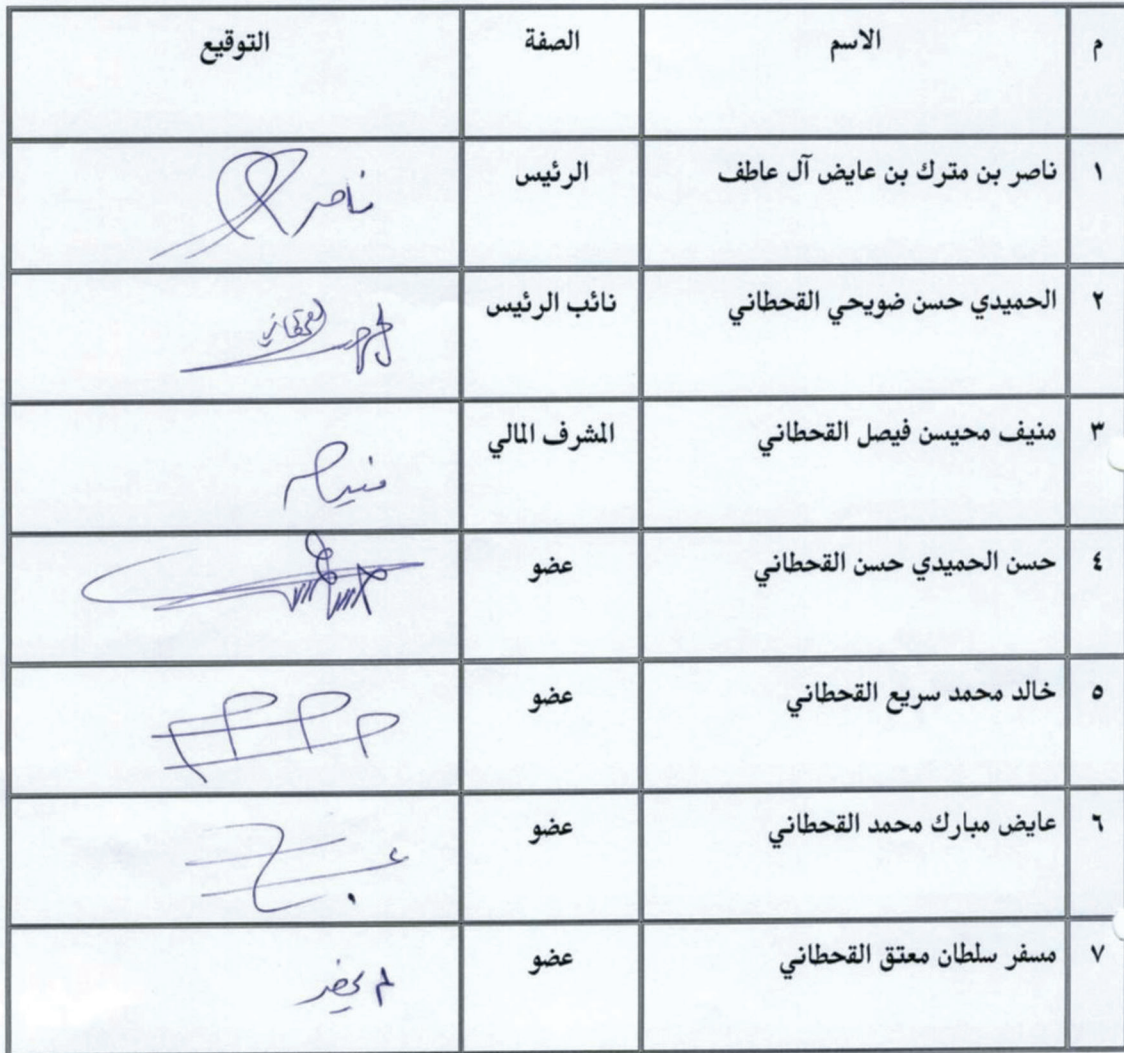 م الاسم الصفة التوقيع
١ ناصر بن مترك بن عايض آل عاطف الرئيس ناصر
٢ الحميدي حسن ضويحي القحطاني نائب الرئيس القحطاني
٣ منيف محيسن فيصل القحطاني المشرف المالي منيف
٤ حسن الحميدي حسن القحطاني عضو
٥ خالد محمد سريع القحطاني عضو
٦ عايض مبارك محمد القحطاني عضو
٧ مسفر سلطان معتق القحطاني عضو لم يحضر